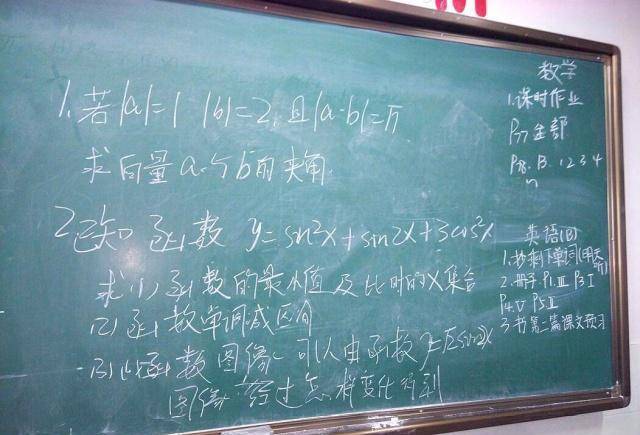 1. 若|a|=1 |b|=2,且|a-b|=√7
求向量a与b的夹角
2. 已知函数 y=sin²x+sin2x+3cos²x
求(1)函数的最小值及此时的X集合
(2)函数单调减区间
(3)此函数图像可以由函数y=√2sin2x
图像经过怎样变化得到
数学
1.课时作业
P77全部
P78. 13. 1 2 3 4
英语(B)
1.抄剩下单词(明天听)
2.册子.P1.Ⅲ P3 Ⅰ
P4.Ⅴ P5Ⅱ
3.书第二篇课文预习